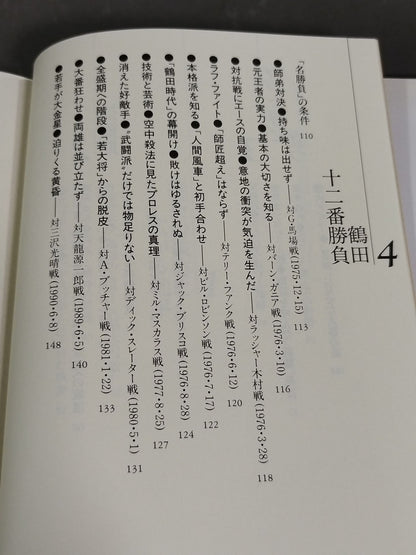 4
鶴田
十二番勝負
「名勝負」の条件 110
●師弟対決●持ち味は出せず——対G・馬場戦(1975・12・15) 113
●元王者の実力●基本の大切さを知る——対バーン・ガニア戦(1976・3・10) 116
●対抗戦にエースの自覚●意地の衝突が気迫を生んだ——対ラッシャー木村戦(1976・3・28) 118
●ラフ・ファイト●「師匠超え」はならず——対テリー・ファンク戦(1976・6・12) 120
●本格派を知る●「人間風車」と初手合わせ——対ビル・ロビンソン戦(1976・7・17) 122
●「鶴田時代」の幕開け●敗けはゆるされぬ——対ジャック・ブリスコ戦(1976・8・28) 124
●技術と芸術●空中殺法に見たプロレスの真理——対ミル・マスカラス戦(1977・8・25) 127
●消えた好敵手●“武闘派”だけでは物足りない——対ディック・スレーター戦(1980・5・1) 131
●全盛期への階段●「若大将」からの脱皮——対A・ブッチャー戦(1981・1・22) 133
●大番狂わせ●両雄は並び立たず——対天龍源一郎戦(1989・6・5) 140
●若手が大金星●迫りくる黄昏——対三沢光晴戦(1990・6・8) 148